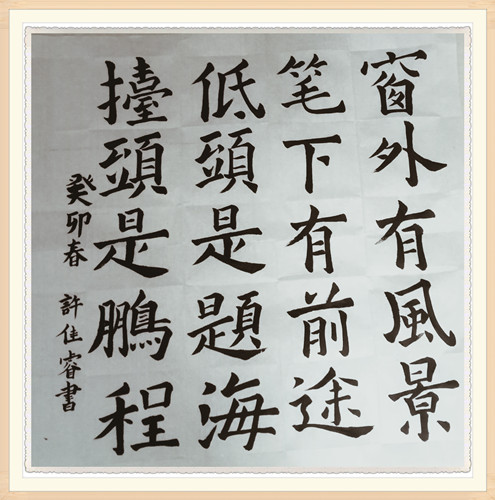 窗外有風景
笔下有前途
低頭是題海
擡頭是鵬程
癸卯春 許佳睿書